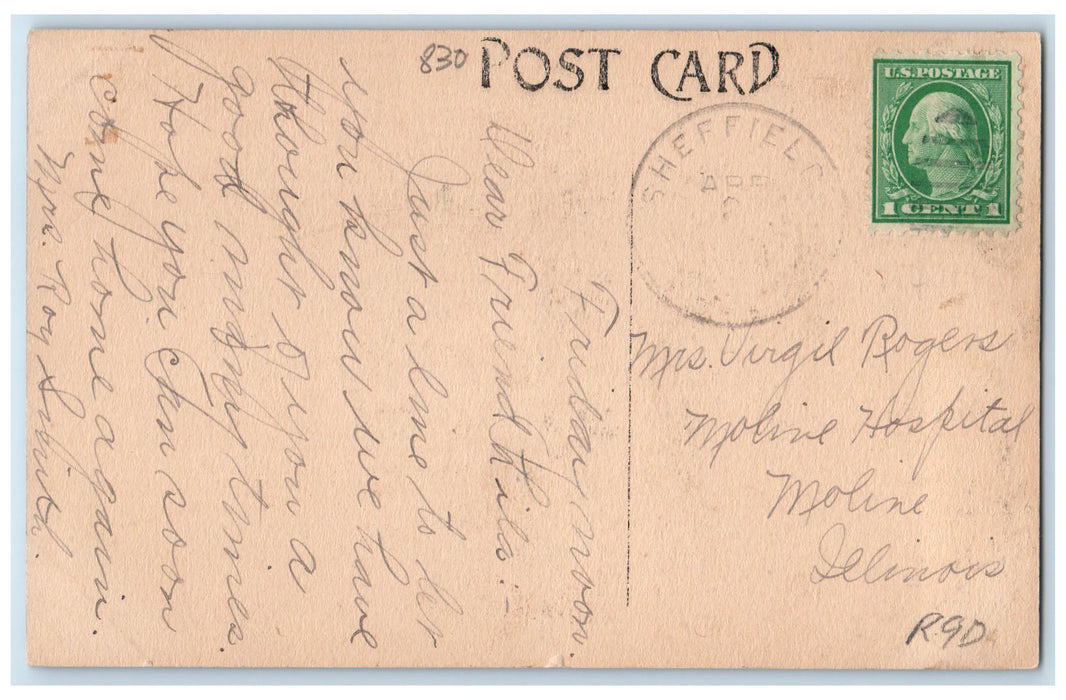 830 POST CARD
U.S. POSTAGE
1 CENT 1
SHEFFIEL
APR
Friday, noon.
Dear Friend
Just a line to let
you know we have
thought of you a
good many times.
Hope you can soon
come home again.
Mrs. Roy Smith.
Mrs. Virgil Rogers
Moline Hospital
Moline
Illinois
R9D